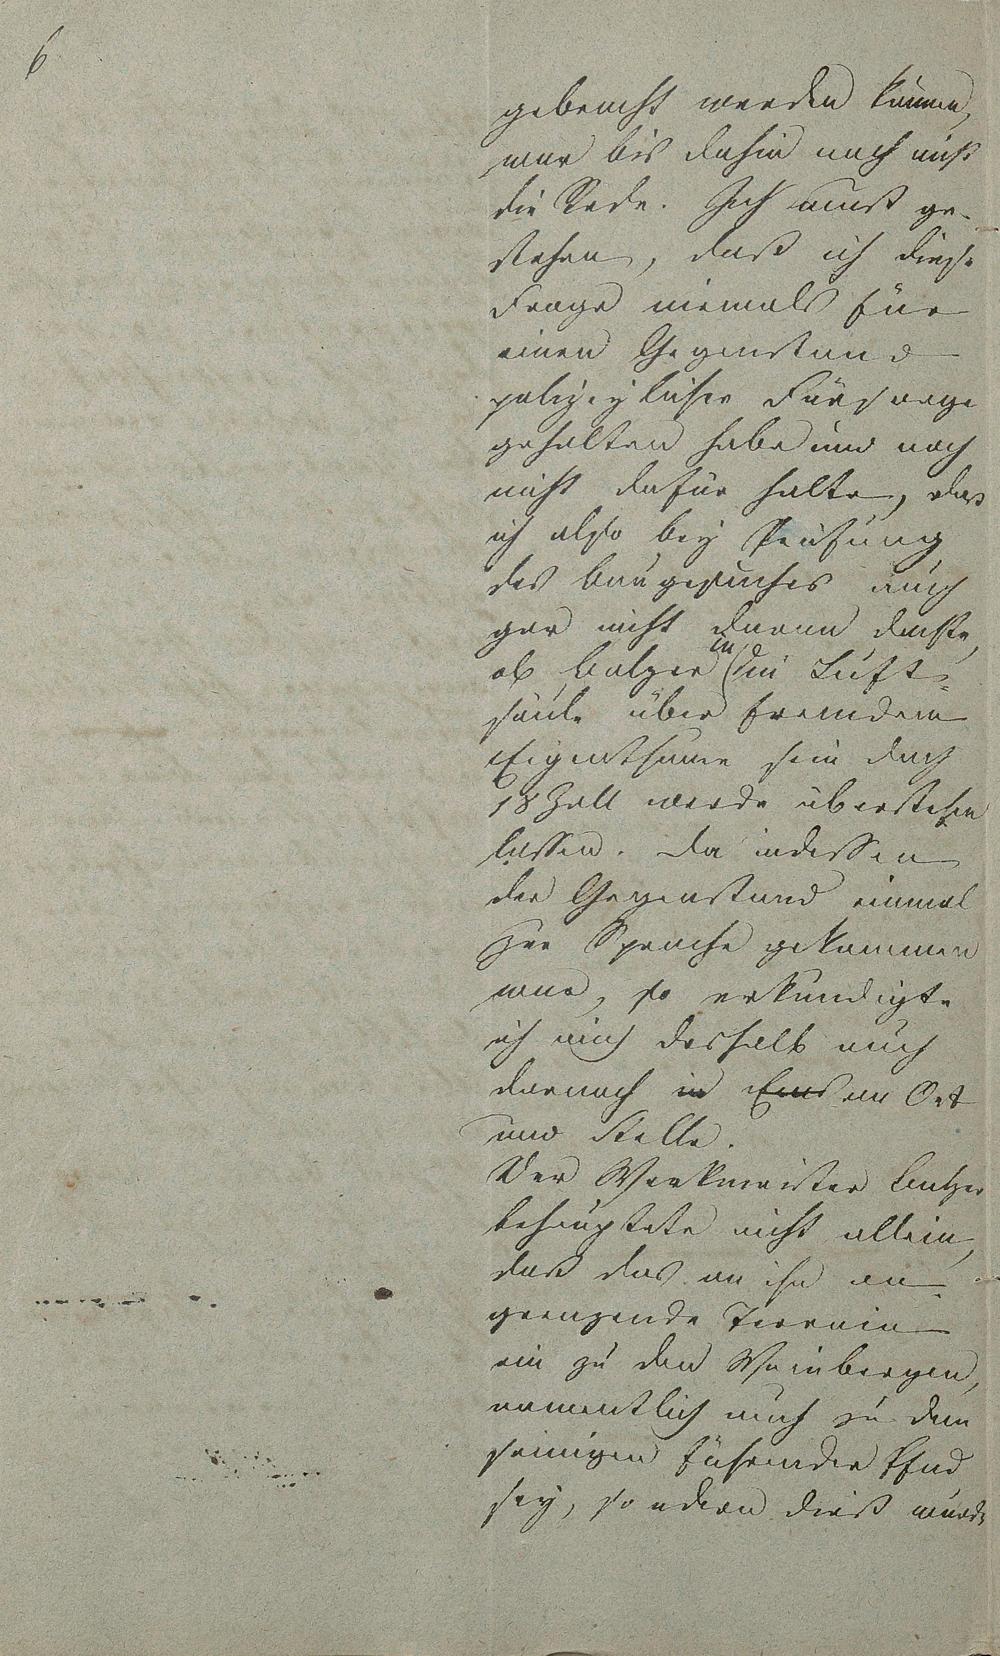 6
gebracht werden können,
war bis dahin noch nicht
die Rede. Ich muß ge-
stehen, daß ich diese
Frage niemals für
einen Gegenstand
polizeylicher Fürsorge
gehalten habe und noch
nicht dafür halte, daß
ich also bey Prüfung
des Baugesuches auch
gar nicht daran dachte,
ob Balzer in die Luft-
säule über fremdem
Eigenthume sein Dach
18 Zoll werde überstehen
lassen. Da indessen
der Gegenstand einmal
zur Sprache gekommen
war, so erkundigte
ich mich deshalb auch
darnach in Ems an Ort
und Stelle.
Der Werkmeister Balzer
behauptete nicht allein,
daß das an ihn an-
grenzende Terrain
ein zu den Weinbergen,
namentlich auch zu dem
seinigen führender Pfad
sey, sondern dieß wurde